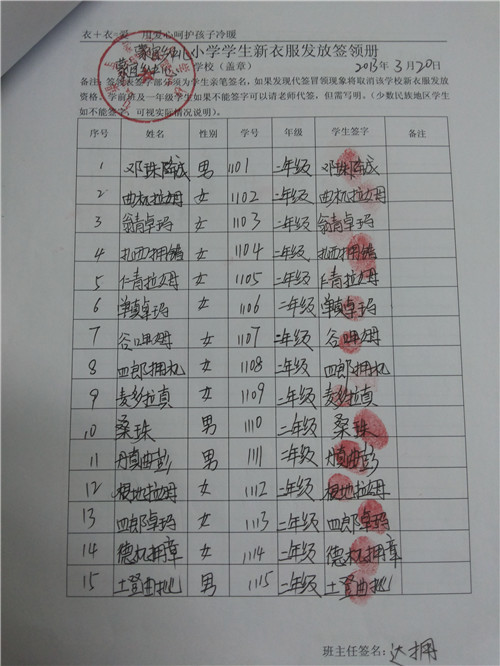 衣+衣=爱 用爱心呵护孩子冷暖
小学学生新衣服发放签领册
学校(盖章) 2013年3月20日
备注:签领表签字部分须为学生亲笔签名,如果发现代签冒领现象将取消该学校新衣服发放
资格。学前班及一年级学生如果不能签字可以请老师代签,但需写明。(少数民族地区学生
如不能签字,可视实际情况说明)。
序号 姓名 性别 学号 年级 学生签字 备注
1 邓珠 男 1101 二年级 邓珠
2 曲机拉姆 女 1102 二年级 曲机拉姆
3 翁青卓玛 女 1103 二年级 翁青卓玛
4 扎西拥 女 1104 二年级 扎西拥
5 仁青拉姆 女 1105 二年级 仁青拉姆
6 单真卓玛 女 1106 二年级 单真卓玛
7 谷呷姆 女 1107 二年级 谷呷姆
8 四郎拥机 女 1108 二年级 四郎拥机
9 麦多拉真 女 1109 二年级 麦多拉真
10 桑珠 男 1110 二年级 桑珠
11 丹真曲彭 男 1111 二年级 丹真曲彭
12 根地拉姆 女 1112 二年级 根地拉姆
13 四郎卓玛 女 1113 二年级 四郎卓玛
14 德机拥章 女 1114 二年级 德机拥章
15 土登曲批 男 1115 二年级 土登曲批
班主任签名:达拥